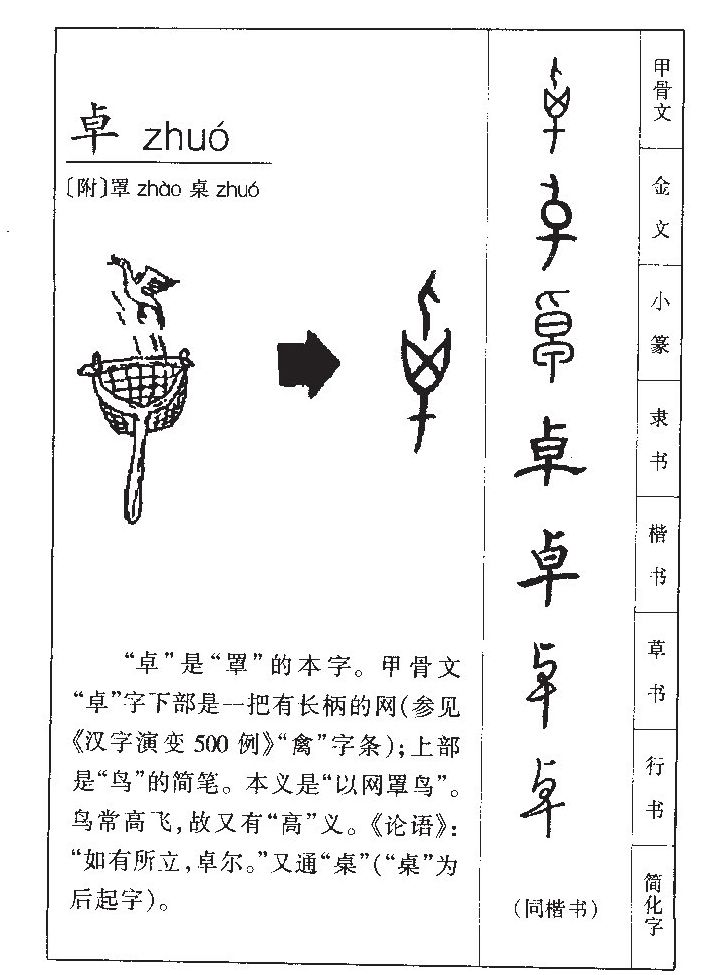 卓 zhuó
〔附〕罩 zhào 桌 zhuó
“卓”是“罩”的本字。甲骨文
“卓”字下部是一把有长柄的网(参见
《汉字演变500例》“禽”字条);上部
是“鸟”的简笔。本义是“以网罩鸟”。
鸟常高飞,故又有“高”义。《论语》:
“如有所立,卓尔。”又通“桌”(“桌”为
后起字)。
甲骨文
金文
小篆
隶书
卓
楷书
卓
草书
卓
行书
卓
简化字
(同楷书)